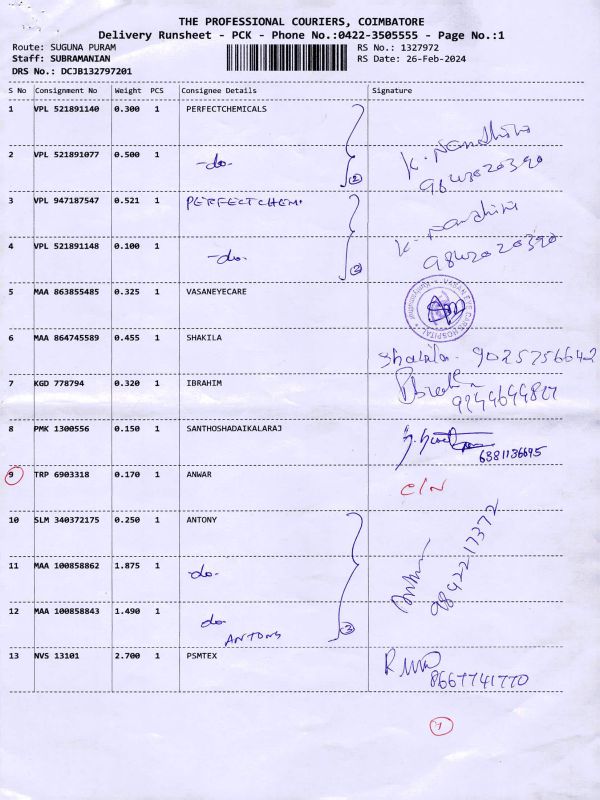 THE PROFESSIONAL COURIERS, COIMBATORE
Delivery Runsheet - PCK - Phone No.:0422-3505555 - Page No.:1
Route: SUGUNA PURAM RS No.: 1327972
Staff: SUBRAMANIAN RS Date: 26-Feb-2024
DRS No.: DCJB132797201
S No Consignment No Weight PCS Consignee Details Signature
1 VPL 521891140 0.300 1 PERFECTCHEMICALS
K. Nandhini
2 VPL 521891077 0.500 1 -do- 2 9843020390
3 VPL 947187547 0.521 1 PERFECTCHEM.
K. Nandhini
4 VPL 521891148 0.100 1 -do- 2 9843020390
5 MAA 863855485 0.325 1 VASANEYECARE VASAN EYE CARE HOSPITAL
6 MAA 864745589 0.455 1 SHAKILA Shakila - 9025756642
7 KGD 778794 0.320 1 IBRAHIM
8 PMK 1300556 0.150 1 SANTHOSHADAIKALARAJ
6381136695
9 TRP 6903318 0.170 1 ANWAR C/N
10 SLM 340372175 0.250 1 ANTONY
11 MAA 100858862 1.875 1 -do- 9842217372
12 MAA 100858843 1.490 1 -do- 3
ANTONS
13 NVS 13101 2.700 1 PSMTEX
8667741770